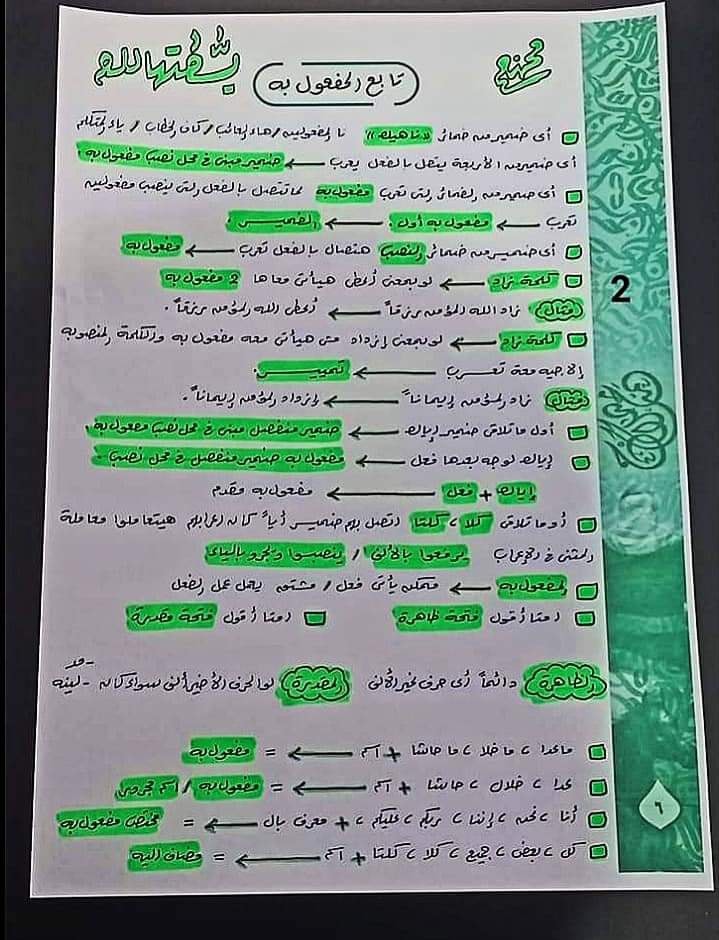 تابع المفعول به
أى ضمير من ضمائر "ناهيك" نا المفعولين / هاء الغائب / كاف الخطاب / ياء المتكلم
أى ضمير من الأربعة يتصل بالفعل يعرب ← ضمير مبنى فى محل نصب مفعول به.
أى ضمير من الضمائر التى تعرب مفعول به لما تتصل بالفعل الذى ينصب مفعولين
تعرب ← مفعول به أول. ← الضمير.
أى ضمير من ضمائر النصب هتتصل بالفعل تعرب ← مفعول به
كلمة زاد ← لو بمعنى أعطى هيأتى معاها 2 مفعول به
مثال زاد الله المؤمن رزقاً ← أعطى الله المؤمن رزقاً.
كلمة زاد ← لو بمعنى إزداد مش هيأتى معه مفعول به والكلمة المنصوبة
إلا جيه معه تعرب ← تمييز.
مثال زاد المؤمن إيماناً ← إزداد المؤمن إيماناً.
أول ما تلاقى ضمير إياك ← ضمير منفصل مبنى فى محل نصب مفعول به.
إياك لو جه بعدها فعل ← مفعول به ضمير منفصل فى محل نصب.
إياك + فعل ← مفعول به مقدم
أو ما تلاقى كلا، كلتا اتصل بهم ضمير أياً كان إعرابهم هيتعاملوا معاملة
المثنى فى الإعراب ليرفعوا بالألف / ينصبوا ويجروا بالياء
المفعول به ← ممكن يأتى فعل / مشتق يعمل عمل الفعل
امتا أقول فتحة ظاهرة امتا أقول فتحة مقدرة
الظاهرة دائماً أى حرف غير الألف المقدرة لو الحرف الأخير ألف سواء كانت - لينه
ماعدا، ماخلا، ماحاشا + اسم ← = مفعول به
عدا، خلال، حاشا + اسم ← = مفعول به / اسم مجرور
أنا، نحن، إننا، بكم، عليكم، + معرف بال ← = مختص مفعول به
كل، بعض، جميع، كلا، كلتا + اسم ← = مضاف إليه
2
٦